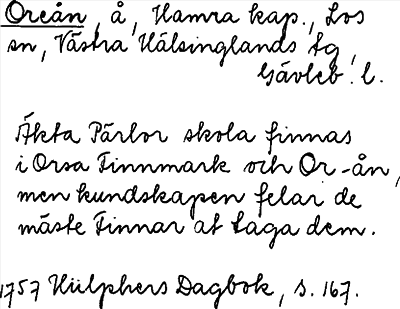 Oreån, å, Hamra kap., Los
sn, Västra Hälsinglands tg,
Gävleb. l.
Äkta Pärlor skola finnas
i Orsa Finnmark och Or-ån,
men kundskapen felar de
mäste Finnar at taga dem.
1757 Hülphers Dagbok, s. 167.